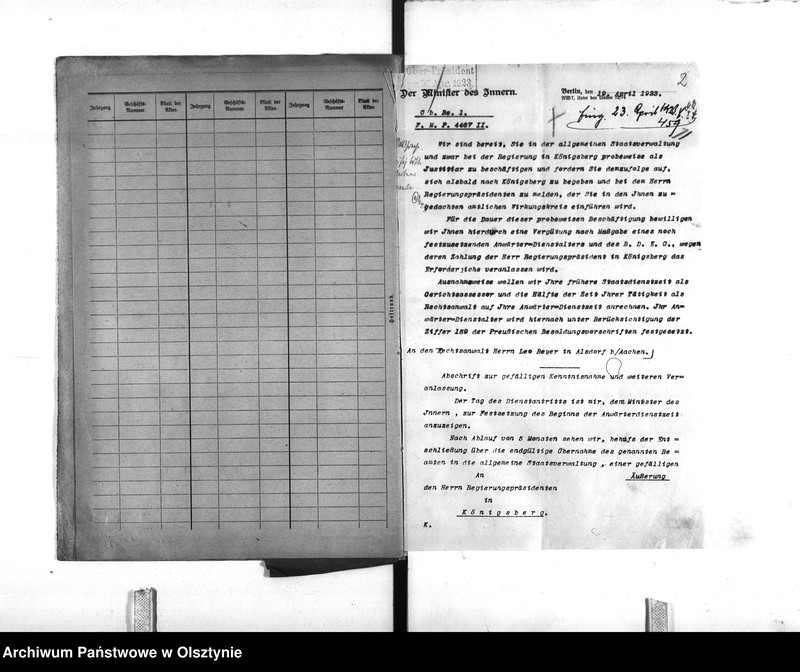 Jahrgang Geschäfts-Nummer Blatt der Akten Jahrgang Geschäfts-Nummer Blatt der Akten Jahrgang Geschäfts-Nummer Blatt der Akten
Ober-Präsident
2
Der Minister des Innern.
Berlin, den 19. April 1923.
C b. Be. 1.
F. M. P. 4467 II.
23. April 1923
459
Wir sind bereit, Sie in der allgemeinen Staatsverwaltung
und zwar bei der Regierung in Königsberg probeweise als
Justitiar zu beschäftigen und fordern Sie demzufolge auf,
sich alsbald nach Königsberg zu begeben und bei dem Herrn
Regierungspräsidenten zu melden, der Sie in den Jhnen zu =
gedachten amtlichen Wirkungskreis einführen wird.
Für die Dauer dieser probeweisen Beschäftigung bewilligen
wir Jhnen hierdurch eine Vergütung nach Maßgabe eines noch
festzusetzenden Anwärter=Dienstalters und des B. D. E. G., wegen
deren Zahlung der Herr Regierungspräsident in Königsberg das
Erforderliche veranlassen wird.
Ausnahmsweise wollen wir Jhre frühere Staatsdienstzeit als
Gerichtsassessor und die Hälfte der Zeit Jhrer Tätigkeit als
Rechtsanwalt auf Jhre Anwärter=Dienstzeit anrechnen. Jhr An=
wärter=Dienstalter wird hiernach unter Berücksichtigung der
Ziffer 159 der Preußischen Besoldungsvorschriften festgesetzt.
An den Rechtsanwalt Herrn Leo Beyer in Alsdorf b/Aachen.
Abschrift zur gefälligen Kenntnisnahme und weiteren Ver=
anlassung.
Der Tag des Dienstantritts ist mir, dem Minister des
Jnnern , zur Festsetzung des Beginns der Anwärterdienstzeit
anzuzeigen.
Nach Ablauf von 5 Monaten sehen wir, behufs der Ent =
schließung über die endgültige Übernahme des genannten Be =
amten in die allgemeine Staatsverwaltung , einer gefälligen
Äußerung
An
den Herrn Regierungspräsidenten
in
Königsberg.
K.
Archiwum Państwowe w Olsztynie